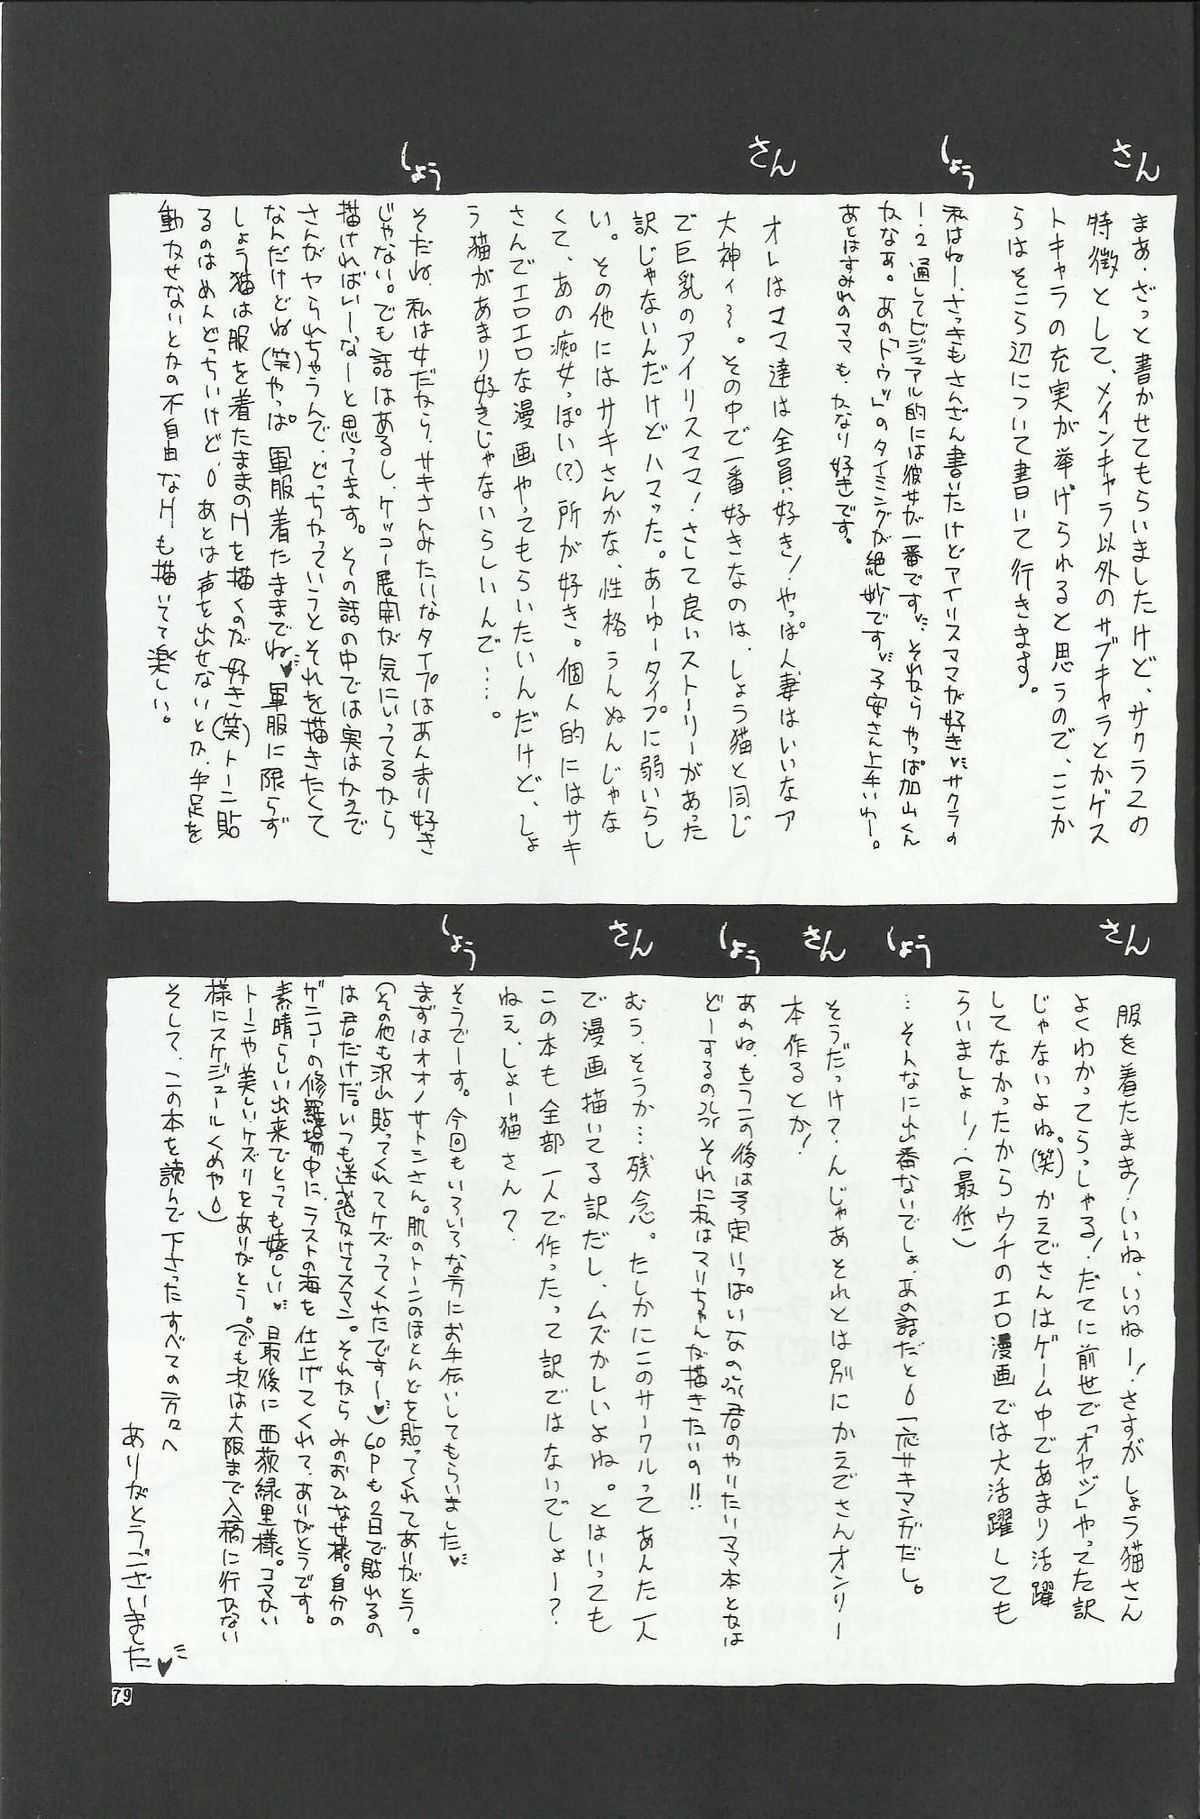 さん
まあ、ざっと書かせてもらいましたけど、サクラ2の
特徴として、メインキャラ以外のサブキャラとかゲス
トキャラの充実が挙げられると思うので、ここか
らはそこら辺について書いて行きます。
しょう
私はねー、さっきもさんざん書いたけどアイリスママが好き サクラの
1・2通してビジュアル的には彼女が一番です それならやっぱ加山くん
かなあ。あの「トウッ」のタイミングが絶妙です 子安さん上手いわー。
あとはすみれのママも、かなり好きです。
さん
オレはママ達は全員好き!やっぱ人妻はいいなァ
大神ィ〜。その中で一番好きなのは、しょう猫と同じ
で巨乳のアイリスママ!さして良いストーリーがあった
訳じゃないんだけどハマった。あーゆータイプに弱いらし
い。その他にはサキさんかな、性格うんぬんじゃな
くて、あの痴女っぽい(?)所が好き。個人的にはサキ
さんでエロエロな漫画やってもらいたいんだけど、しょ
う猫があまり好きじゃないらしいんで…。
しょう
そだね、私は女だから、サキさんみたいなタイプはあんまり好き
じゃない。でも話はあるし、ケッコー展開が気にいってるなら
描ければいーなーと思ってます。その話の中では実はかえで
さんがヤられちゃうんで、どっちかっていうとそれを描きたくて
なんだけどね(笑)やっぱ軍服着たままでね♥軍服に限らず
しょう猫は服を着たままのHを描くのが好き(笑)トーン貼
るのはめんどっちいけど。あとは声を出せないとか、手足を
動かせないとかの不自由なHも描いてて楽しい。
さん
服を着たまま!いいね、いいねー!さすがしょう猫さん
よくわかってらっしゃる!だてに前世で「オヤジ」やってた訳
じゃないよね。(笑)かえでさんはゲーム中であまり活躍
してなかったからウチのエロ漫画では大活躍しても
らいましょー!(最低)
しょう
…そんなに出番ないでしょ、あの話だと 一応サキマンガだし。
さん
そうだっけ?、んじゃあそれとは別にかえでさんオンリー
本作るとか!
しょう
あのね、もうこの後は予定いっぱいなの 君のやりたいママ本とかは
どーするの それに私はマリちゃんが描きたいの!!
さん
むう、そうか…残念。たしかにこのサークルってあんた一人
で漫画描いてる訳だし、ムズかしいよね。とはいっても
この本も全部一人で作ったって訳ではないでしょー?
ねえ、しょー猫さん?
しょう
そうでーす。今回もいろいろな方にお手伝いしてもらいました♥
まずはオオノサトシさん。肌のトーンのほとんどを貼ってくれてありがとう。
(その他も沢山貼ってくれてケズってくれたですー♥)60Pも2日で貼れるの
は君だけだ。いつも迷惑かけてスマン。それからみのおひなせ様。自分の
ゲンコーの修羅場中に、ラストの海を仕上げてくれて、ありがとうです。
素晴らしい出来でとっても嬉しい 最後に西荻緑里様。コマかい
トーンや美しいケズリをありがとう。(でも次は大阪まで入稿に行かない
様にスケジュールくめや)
そして、この本を読んで下さったすべての方々へ
ありがとうございました♥
79